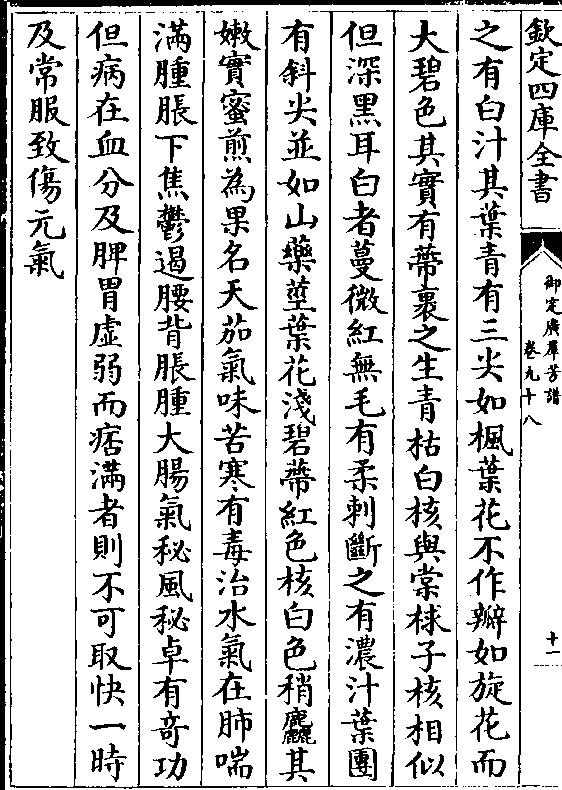 欽定四庫全書
御定廣羣芳譜
卷九十八
十一
之有白汁其葉青有三尖如楓葉花不作瓣如旋花而
大碧色其實有蔕裹之生青枯白核與棠梂子核相似
但深黑耳白者蔓微紅無毛有柔刺斷之有濃汁葉團
有斜尖並如山藥莖葉花淺碧蔕紅色核白色稍麤其
嫩實蜜煎為果名天茄氣味苦寒有毒治水氣在肺喘
滿腫脹下焦鬱遏腰背脹腫大腸氣秘風秘卓有奇功
但病在血分及脾胃虛弱而痞滿者則不可取快一時
及常服致傷元氣